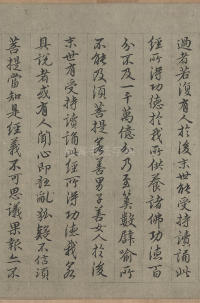 過者若復有人於後末世能受持讀誦此
經所得功德於我所供養諸佛功德百
分不及一千萬億分乃至筭數譬喻所
不能及須菩提若善男子善女人於後
末世有受持讀誦此經所得功德我若
具說者或有人聞心即狂亂狐疑不信須
菩提當知是經義不可思議果報亦不